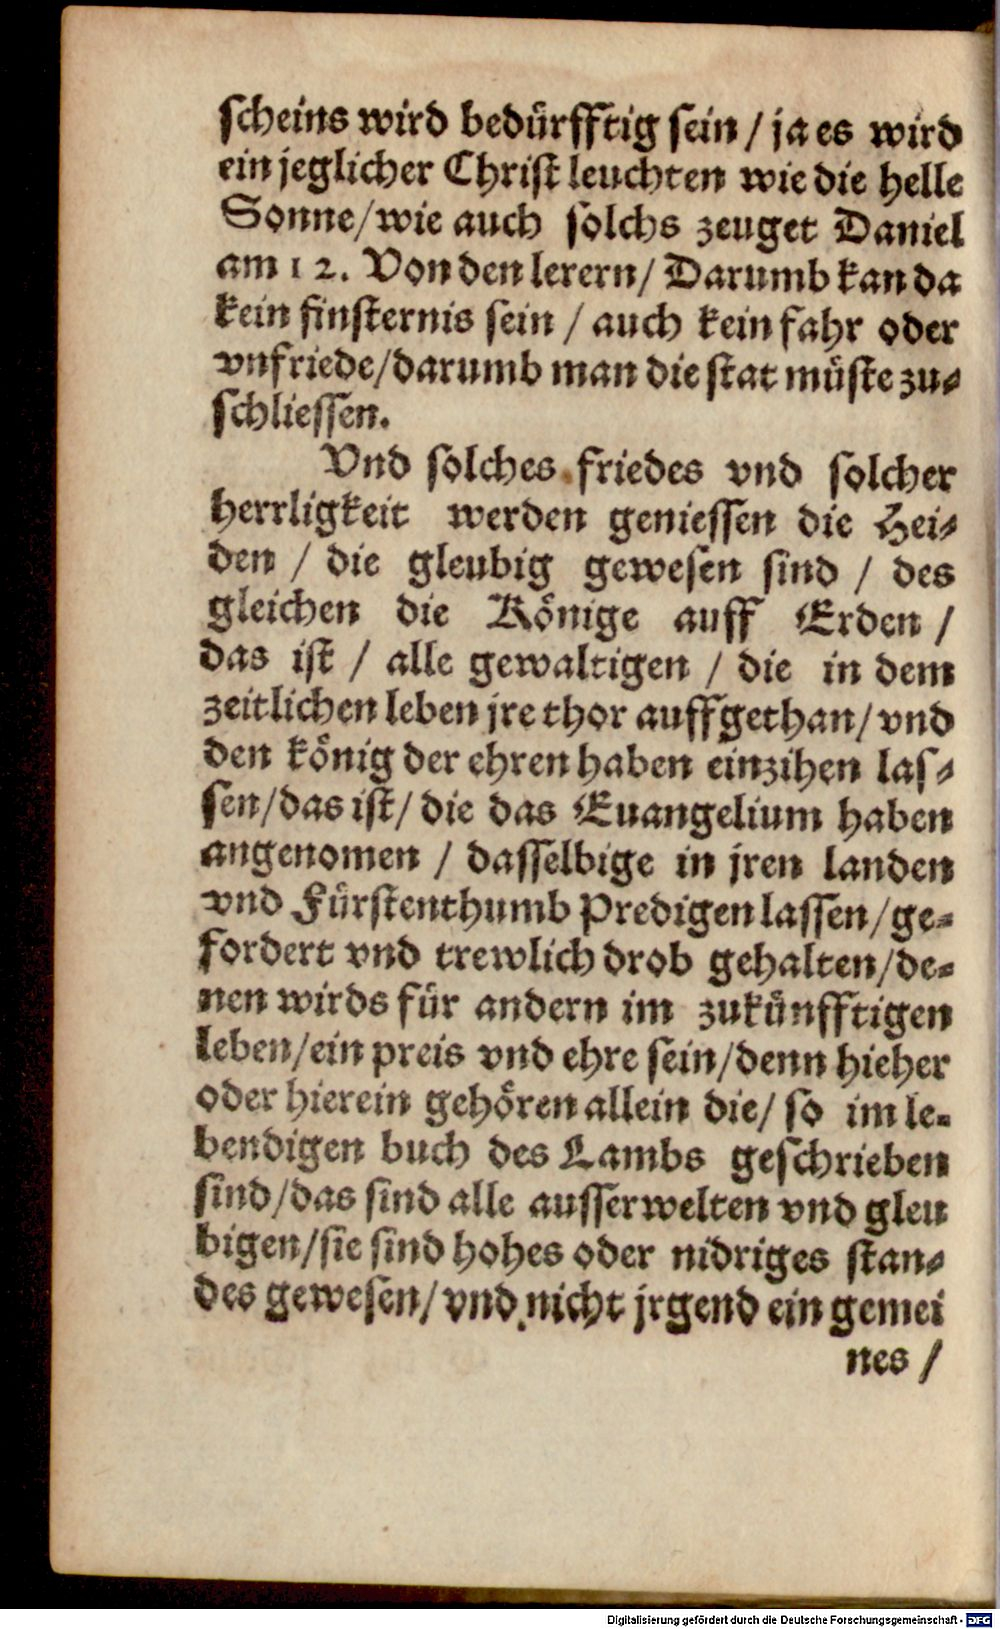 scheins wird bedürfftig sein / ja es wird
ein jeglicher Christ leuchten wie die helle
Sonne/wie auch solchs zeuget Daniel
am 12. Von den lerern/ Darumb kan da
kein finsternis sein / auch kein fahr oder
vnfriede/darumb man die stat müste zu-
schliessen.
Vnd solches friedes vnd solcher
herrligkeit werden geniessen die Hei-
den / die gleubig gewesen sind / des
gleichen die Könige auff Erden /
das ist / alle gewaltigen / die in dem
zeitlichen leben jre thor auffgethan/ vnd
den könig der ehren haben einzihen las-
sen/das ist/ die das Euangelium haben
angenomen / dasselbige in jren landen
vnd Fürstenthumb Predigen lassen/ge-
fordert vnd trewlich drob gehalten/de-
nen wirds für andern im zukünfftigen
leben/ein preis vnd ehre sein/denn hieher
oder hierein gehören allein die/ so im le-
bendigen buch des Lambs geschrieben
sind/das sind alle ausserwelten vnd gleu
bigen/sie sind hohes oder nidriges stan-
des gewesen/ vnd nicht jrgend ein gemei
nes /
Digitalisierung gefördert durch die Deutsche Forschungsgemeinschaft - DFG